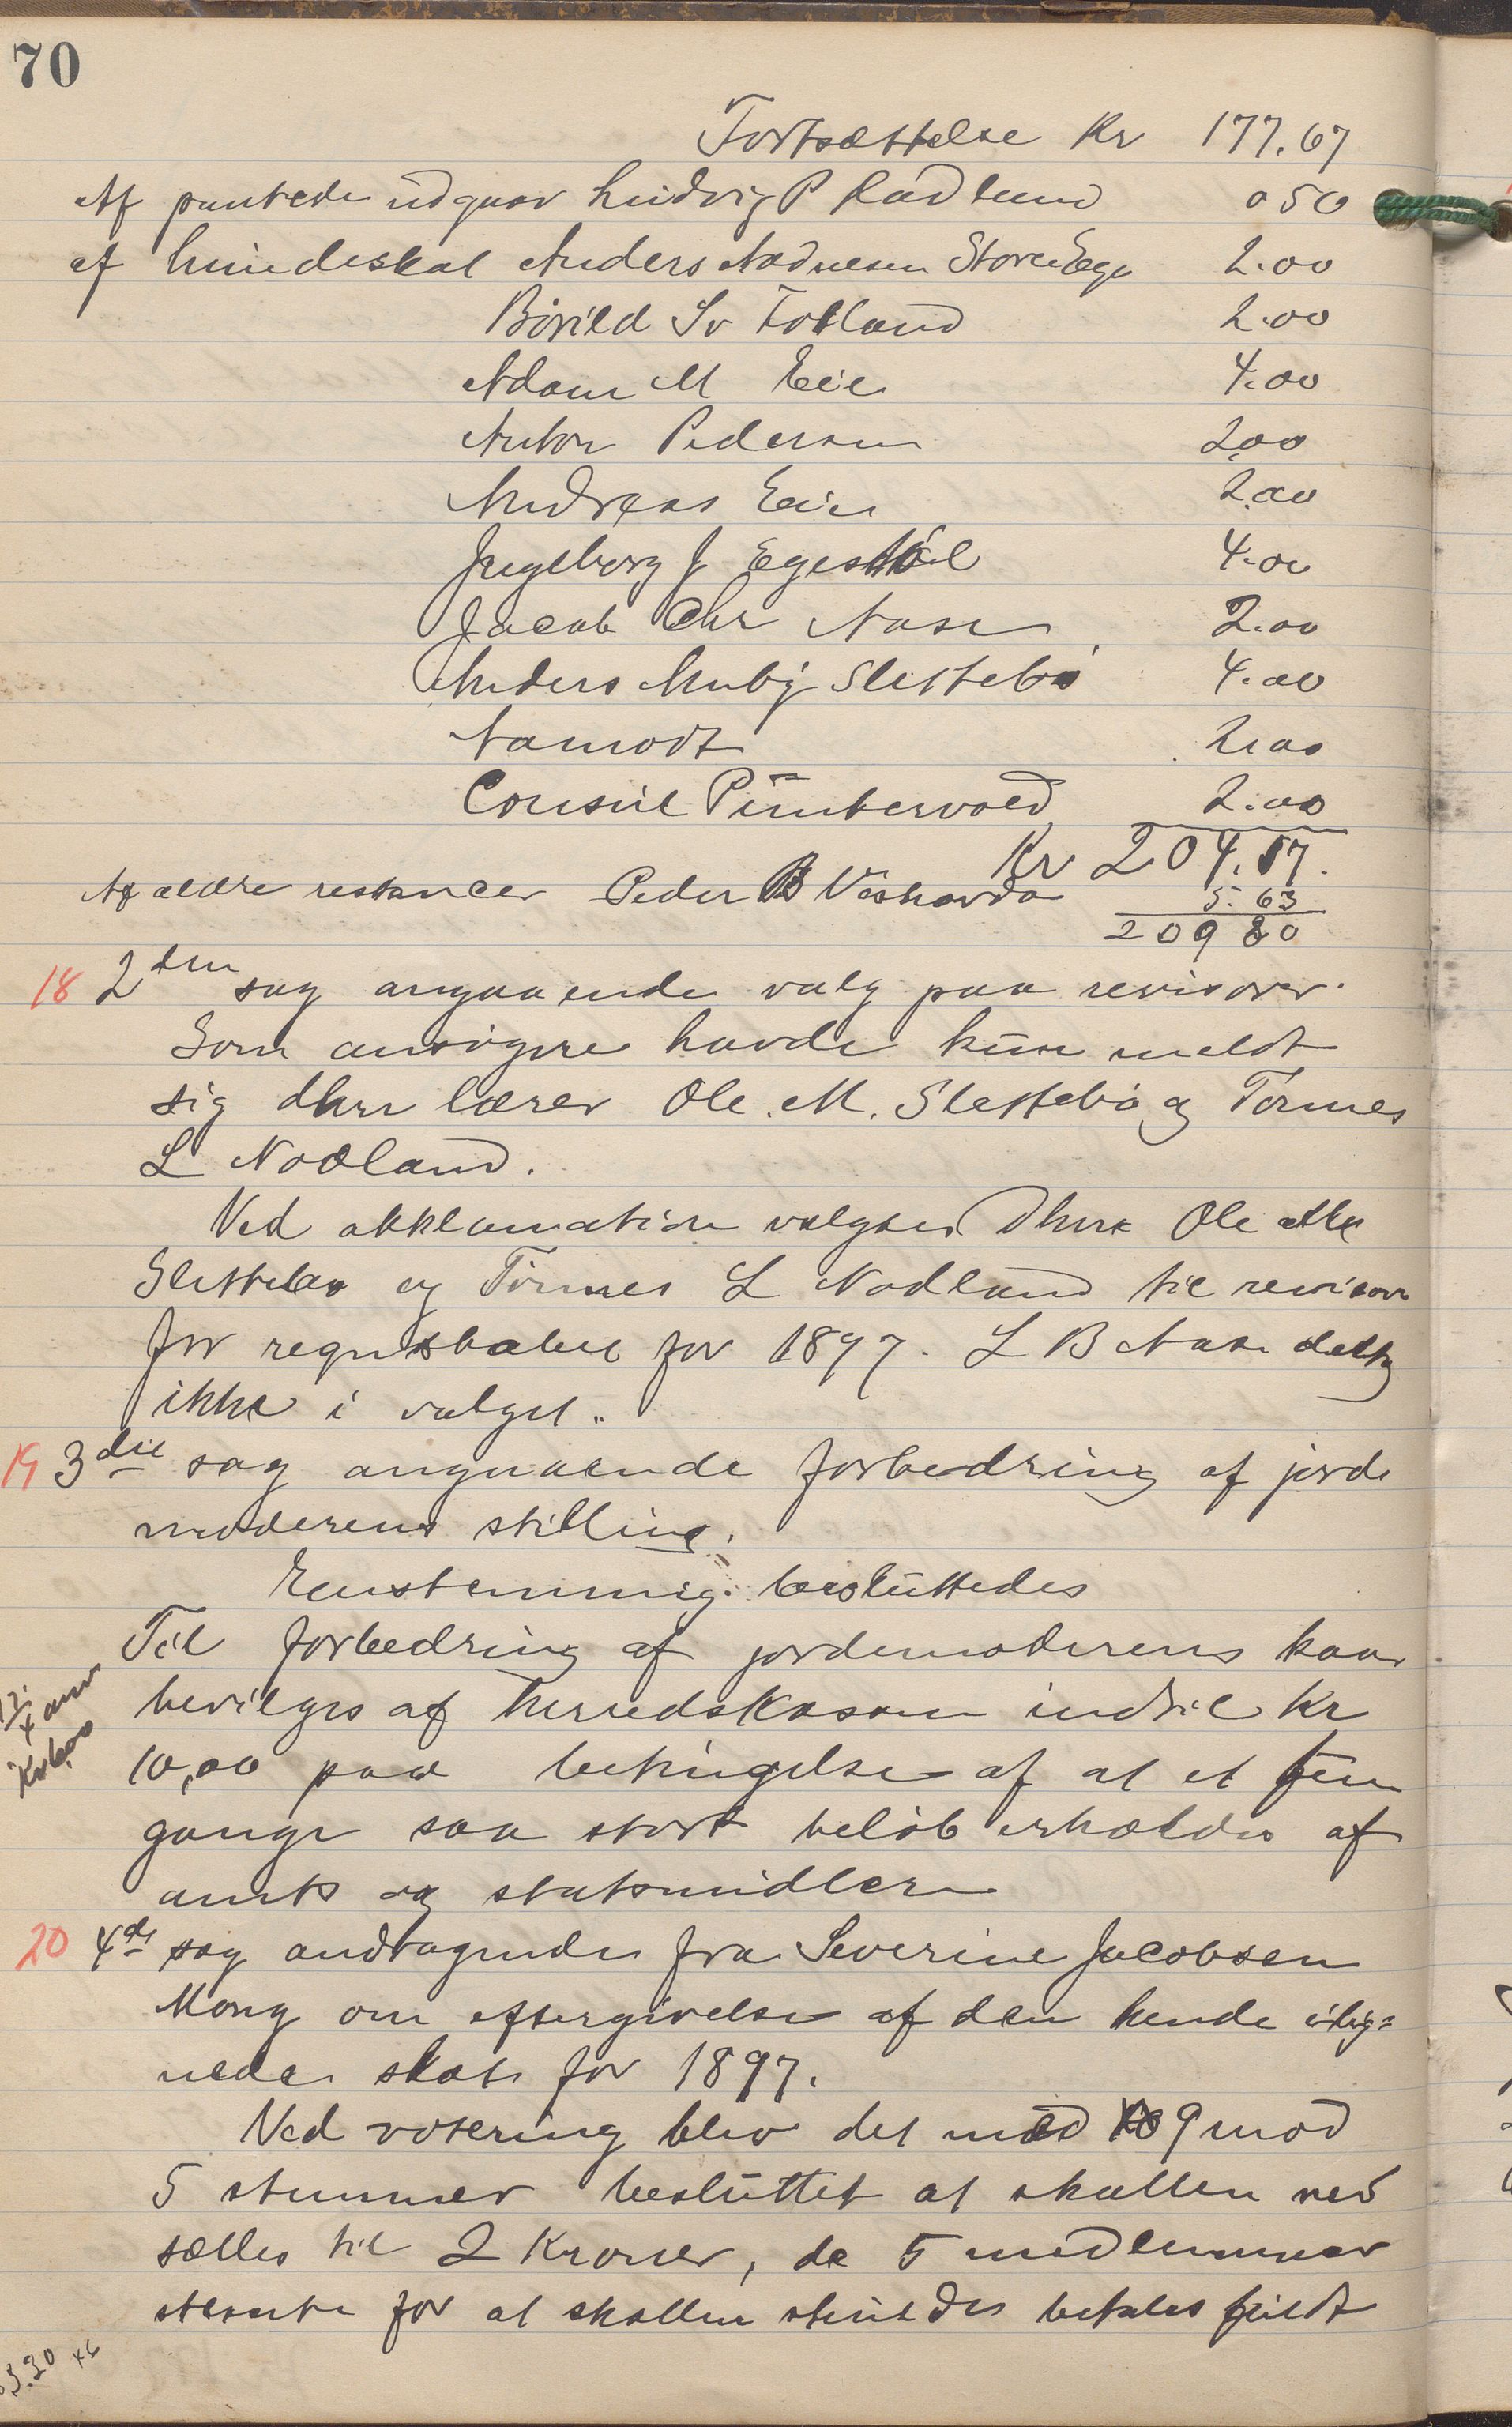 70
Fortsættelse Kr 177.67
Af pantede udgaar Ludvig P Radland 0 50
af hundeskat Anders Aadnesen Store Ege 2.00
Börild Sv Fotland 2.00
Adam M Eie 4.00
Anton Pedersen 2.00
Andreas Eie 2.00
Ingeborg J Egestöl 4.00
Jacob Chr Aase 2.00
Anders Slettebö 4.00
Aamodt 2.00
Consul Puntervold 2.00
Kr 204.17.
Af ældre restancer Peder B Veshovda 5.63
209 80
18 2den sag angaaende valg paa revisorer.
Som ansögere havde kun meldt
sig dhrr lærer Ole M. Slettebö og Tönnes
L Nodland.
Ved akklamation valgtes Dhrr Ole M
Slettebö og Tönnes L Nodland til revisorer
for regnskabet for 1897. L B Aase deltog
ikke i valget.
19 3die sag angaaende forbedring af jorde
moderens stilling.
Enstemmig besluttedes
Til forbedring af jordemoderens kaar
bevilges af herredskassen indtil Kr
10,00 paa betingelse af at et fem
gange saa stort belöb erholdes af
amts og statsmidler
20 4de sag andragende fra Severine Jacobsen
Mong om eftergivelse af den hende ilig=
nede skat for 1897.
Ved votering blev det med 9 mod
5 stemmer besluttet at skatten ned
sættes til 2 Kroner, de 5 medlemmer
stemte for at skatten skuldes betales fuldt
3.30 x 6